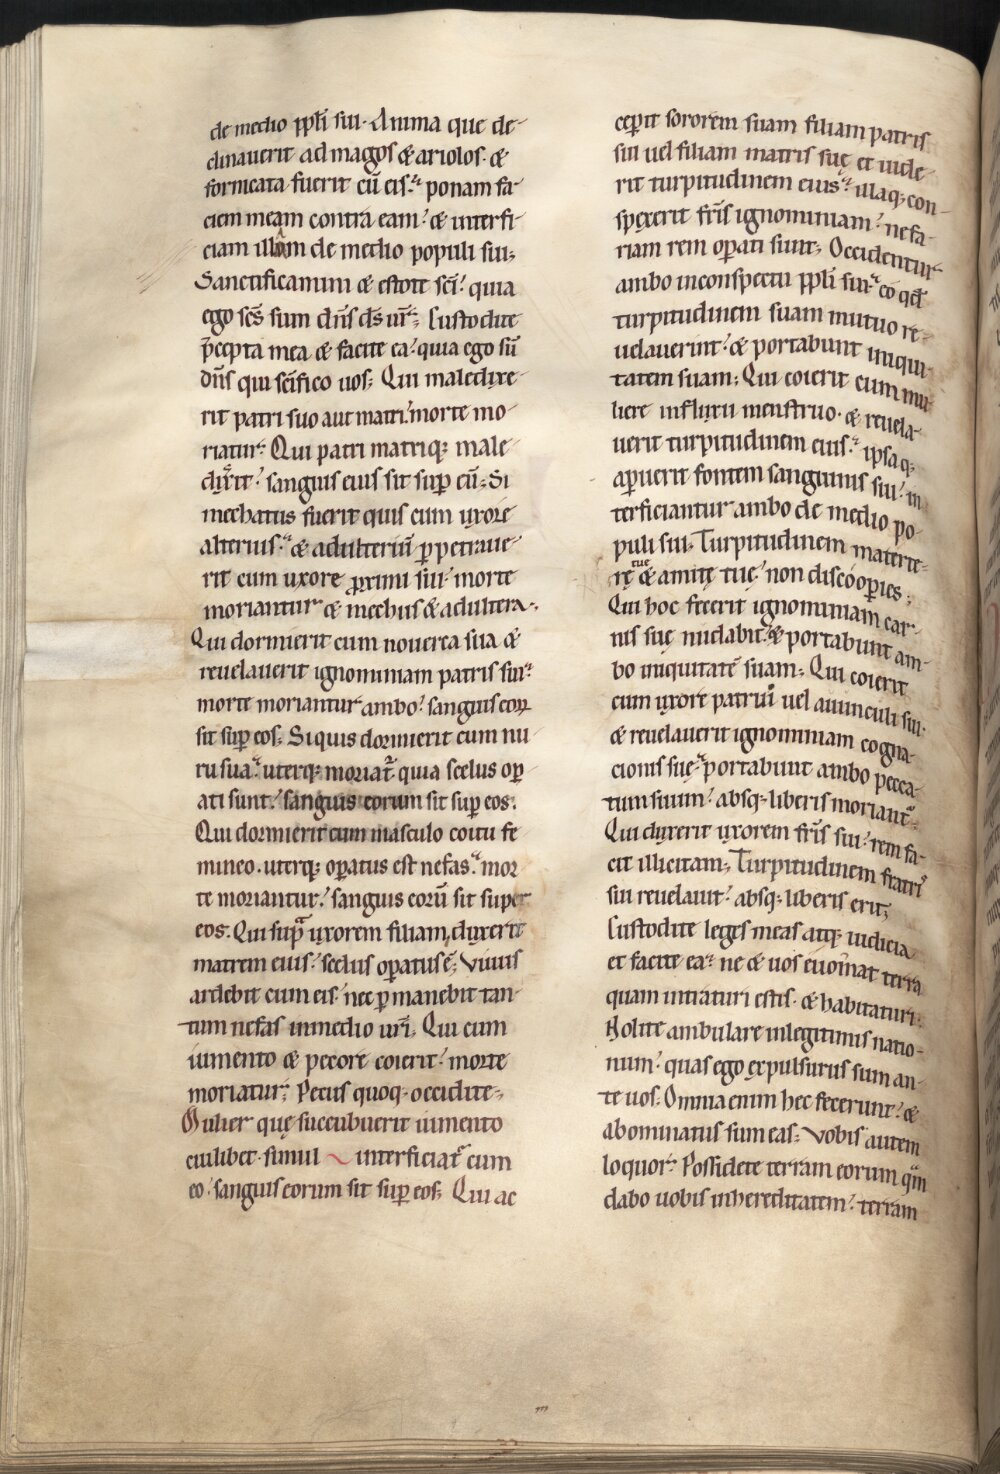 de medio ppl̄i sui. Anima que de-
clinauerit ad magos & ariolos. &
fornicata fuerit cū eis: ponam fa-
ciem meam contra eam: & interfi-
ciam illam de medio populi sui;
Sanctificamini & estote sc̄i: quia
ego sc̄s sum dn̄s ds̄ ur̄; Custodite
p̄cepta mea & facite ea: quia ego sū
dn̄s qui sc̄ifico uos; Qui maledixe-
rit patri suo aut matri: morte mo-
riatur; Qui patri matriq; male-
dixit: sanguis eius sit sup eū; Si
mechatus fuerit quis cum uxore
alterius: & adulteriū ppetraue-
rit cum uxore proximi sui: morte
moriantur & mechus & adultera;
Qui dormierit cum nouerca sua &
reuelauerit ignominiam patris sui:
morte moriantur ambo: sanguis eoꝝ
sit sup eos; Si quis dormierit cum nu-
ru sua: uterq; moriat̄ quia scelus op-
ati sunt: sanguis eorum sit sup eos:
Qui dormierit cum masculo coitu fe-
mineo. uterq; opatus est nefas: mor
te moriantur: sanguis eorū sit super
eos. Qui supra uxorem filiam, duxerit
matrem eius: scelus opatus ē; Viuus
ardebit cum eis: nec pmanebit tan-
tum nefas in medio ur̄i; Qui cum
iumento & pecore coierit: morte
moriatur; Pecus quoq; occidite;
Mulier quę succubuerit iumento
cuilibet. simul interficiat̄ cum
eo: sanguis eorum sit sup eos; Qui ac
ceperit sororem suam filiam patris
sui uel filiam matris suę et uide-
rit turpitudinem eius: illaq; con-
spexerit fr̄is ignominiam: nefa-
riam rem opati sunt; Occidentur
ambo in conspectu ppl̄i sui: eo qd̄
turpitudinem suam mutuo re-
uelauerint: & portabunt iniqui-
tatem suam; Qui coierit cum mu-
liere in fluxu menstruo. & reuela-
uerit turpitudinem eius: ipsaq;
apuerit fontem sanguinis sui: in
terficiantur ambo de medio po-
puli sui; Turpitudinem materte-
rę tuę & amitę tuę: non discoopies;
Qui hoc fecerit ignominiam car-
nis suę nudabit: & portabunt am-
bo iniquitatē suam; Qui coierit
cum uxore patrui uel auunculi sui.
& reuelauerit ignominiam cogna-
cionis suę: portabunt ambo pecca-
tum suum: absq; liberis moriant̄;
Qui duxerit uxorem fr̄is sui: rem fa-
cit illicitam; Turpitudinem fratris
sui reuelauit: absq; liberis erit;
Custodite leges meas atq; iudicia
et facite ea: ne & uos euomat terra
quam intraturi estis. & habitaturi:
Nolite ambulare in legitimis natio-
num: quas ego expulsurus sum an-
te uos; Omnia enim hec fecerunt: &
abominatus sum eas; Vobis autem
loquor: Possidete terram eorum quā
dabo uobis in hereditatem: terram